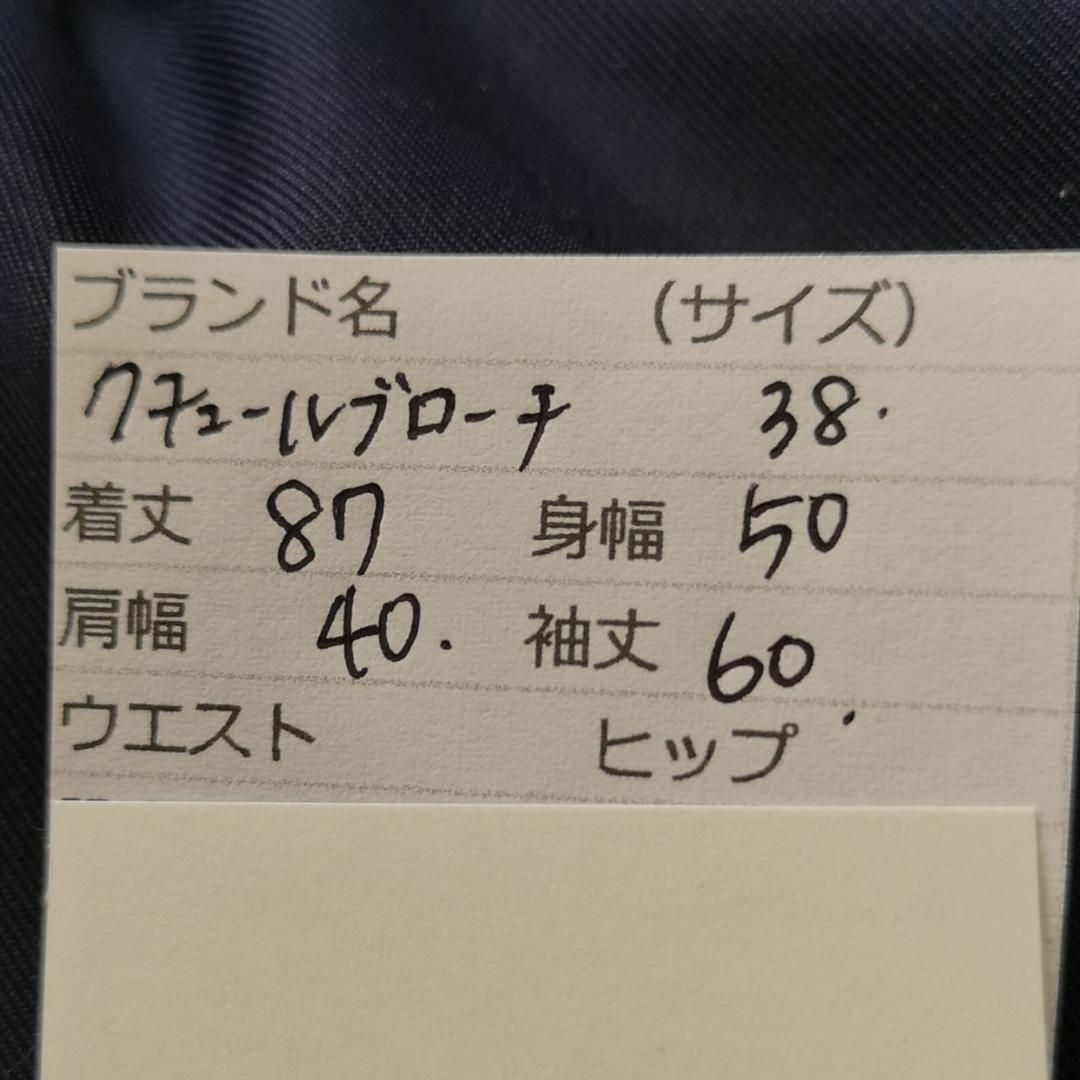 ブランド名 （サイズ）
クチュールブローチ 38.
着丈 87 身幅 50
肩幅 40. 袖丈 60.
ウエスト ヒップ